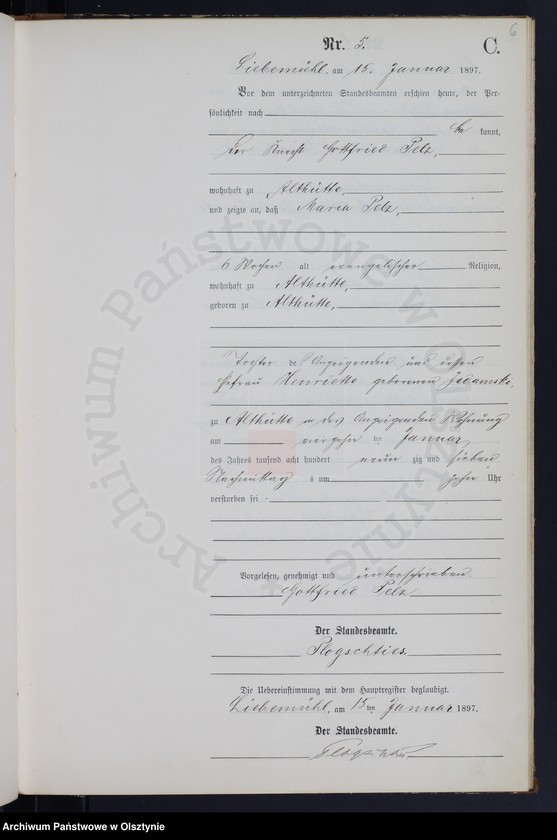 6
Nr. 5.
C.
Liebemühl, am 15. Januar 1897.
Vor dem unterzeichneten Standesbeamten erschien heute, der Per-
sönlichkeit nach
be kannt,
der Knecht Gottfried Pelz,
wohnhaft zu Althütte,
und zeigte an, daß Maria Pelz,
6 Wochen alt evangelischer Religion,
wohnhaft zu Althütte,
geboren zu Althütte,
Tochter des Anzeigenden und dessen
Ehefrau Henriette geborenen
zu Althütte in des Anzeigenden Wohnung
am vierzehn ten Januar
des Jahres tausend acht hundert neun zig und sieben
Nachmittag s um zehn Uhr
verstorben sei
Vorgelesen, genehmigt und unterschrieben
Gottfried Pelz
Der Standesbeamte.
Plogschties.
Die Uebereinstimmung mit dem Hauptregister beglaubigt.
Liebemühl, am 15ten Januar 1897.
Der Standesbeamte.
Archiwum Państwowe w Olsztynie
Archiwum Państwowe w Olsztynie